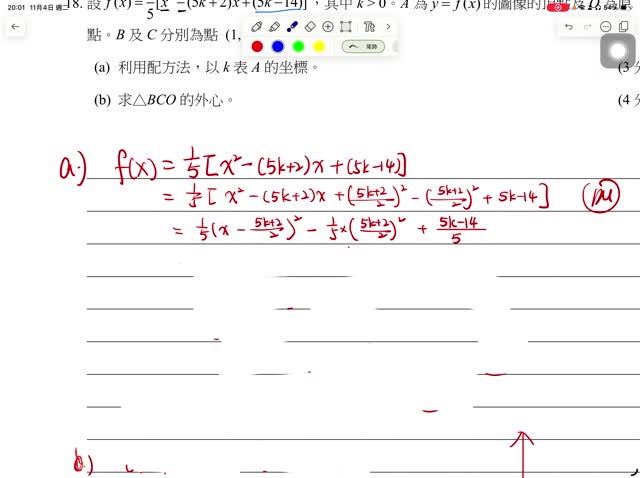 20:01 11月4日 週
18. 設 f(x) = 1/5[x² − (5k+2)x + (5k−14)],其中 k > 0。A 為 y = f(x) 的圖像的頂點及 O 為原
點。B 及 C 分別為點 (1,
(a) 利用配方法,以 k 表 A 的坐標。 (3 分
(b) 求△BCO 的外心。 (4 分
a.) f(x) = 1/5 [x² − (5k+2)x + (5k−14)]
= 1/5 [x² − (5k+2)x + ((5k+2)/2)² − ((5k+2)/2)² + 5k−14] (1M)
= 1/5 (x − (5k+2)/2)² − 1/5 × ((5k+2)/2)² + (5k−14)/5
b.)